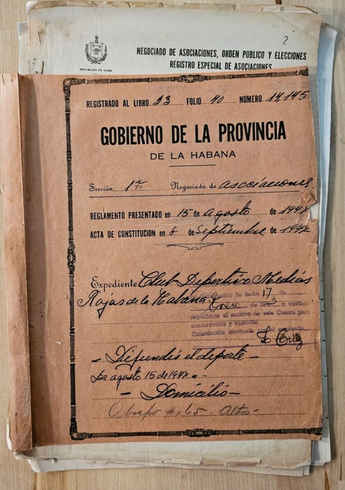 2
REPUBLICA DE CUBA
NEGOCIADO DE ASOCIACIONES, ORDEN PUBLICO Y ELECCIONES
REGISTRO ESPECIAL DE ASOCIACIONES
REGISTRADO AL LIBRO 23 FOLIO 40 NUMERO 14,145
GOBIERNO DE LA PROVINCIA
DE LA HABANA
Sección 1ra Negociado de asociaciones
REGLAMENTO PRESENTADO EN 15 de agosto de 1947
ACTA DE CONSTITUCION en 8 de Septiembre de 1947
Expediente Club Deportivo Medias
Rojas de la Habana
de fecha 17 de
Enero de
el archivo de este
- Difundir el deporte -
de agosto 15 de 1947 -
- Domicilio -
Obispo # 165 - altos -